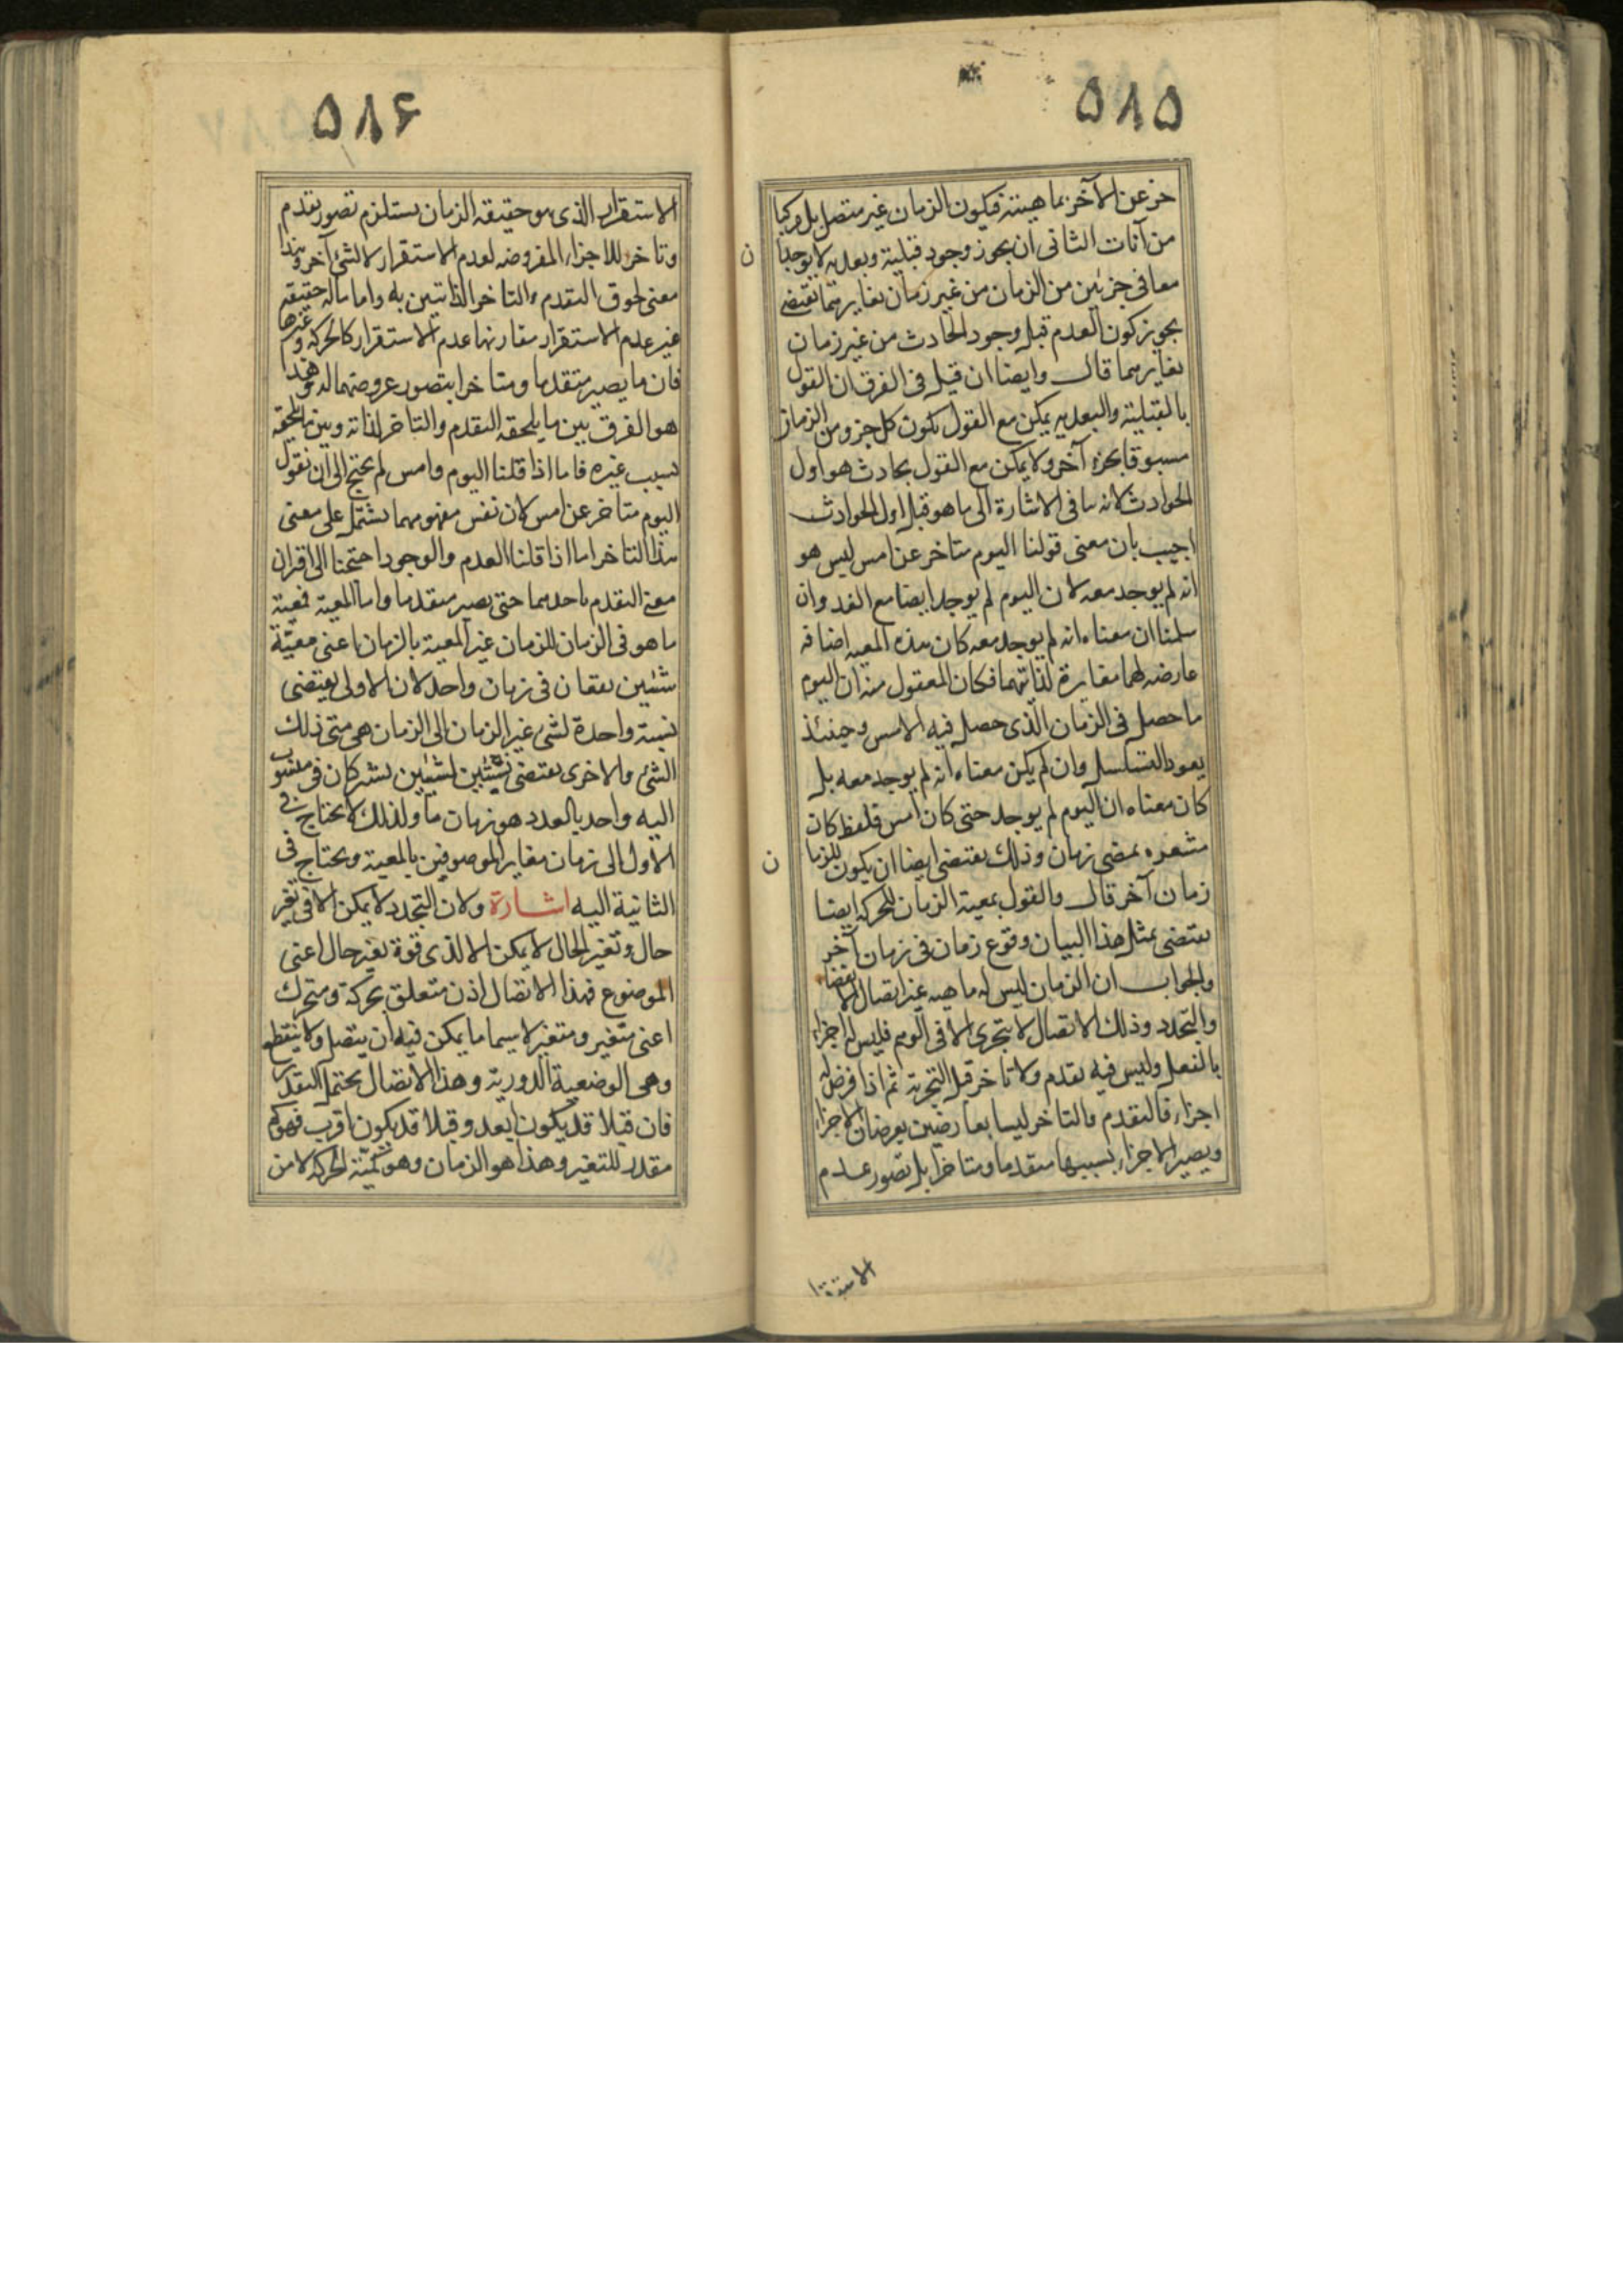 ۵۸۵
خر عن الآخر بماهيته فيكون الزمان غير متصل بل مركبا
من آنات الثانى ان يجوز وجود قبلية وبعدية لا يوجدا
ن
معا فى جزئين من الزمان من غير زمان يغايرهما يقتضى
تجويز كون العدم قبل وجود الحادث من غير زمان
يغايرهما قال وايضا ان قيل فى الفرق ان القول
بالقبلية والبعدية يمكن مع القول بكون كل جزو من الزمان
مسبوقا بجزء آخر ولا يمكن مع القول بحادث هو اول
الحوادث لانه ينافى الاشارة الى ما هو قبل اول الحوادث
اجيب بان معنى قولنا اليوم متاخر عن امس ليس هو
انه لم يوجد معه لان اليوم لم يوجد ايضا مع الغد وان
سلمنا ان معناه انه لم يوجد معه كان هذه المعية اضافة
عارضه لهما مغايرة لذاتيهما فكان المعقول منه ان اليوم
ما حصل فى الزمان الذى حصل فيه الامس وحينئذ
يعود التسلسل وان لم يكن معناه انه لم يوجد معه بل
كان معناه ان اليوم لم يوجد حتى كان امس فلفظ كان
مشعره بمضى زمان وذلك يقتضى ايضا ان يكون للزما
ن
زمان آخر قال والقول بمعية الزمان للحركة ايضا
يقتضى بمثل هذا البيان وقوع زمان فى زمان آخر
والجواب ان الزمان ليس له ماهيه غير اتصال الانقضاء
والتجدد وذلك الاتصال لا يتجزى الا فى الوهم فليس له اجزاء
بالفعل وليس فيه تقدم ولا تاخر قبل التجزية ثم اذا فرض له
اجزاء فالتقدم والتاخر ليسا بعارضين يعرضان الاجزاء
ويصير الاجزاء بسببهما متقدما ومتاخرا بل تصور عدم
الاستقرا
۵۸۶
الاستقرار الذى هو حقيقه الزمان يستلزم تصور تقدم
وتاخر للاجزاء المفروضه لعدم الاستقرار لا لشئ آخر وهذا
معنى لحوق التقدم والتاخر الذاتيين به واما ما له حقيقه
غير عدم الاستقرار يقارنها عدم الاستقرار كالحركه وغيرها
فان ما يصير متقدما ومتاخرا بتصور عروضهما له وهذا
هو الفرق بين ما يلحقه التقدم والتاخر لذاته وبين ما يلحقه
بسبب غيره فاما اذا قلنا اليوم وامس لم يحتج الى ان نقول
اليوم متاخر عن امس لان نفس مفهومهما يشتمل على معنى
هذا التاخر اما اذا قلنا العدم والوجود احتجنا الى اقران
معنى التقدم باحدهما حتى يصير متقدما واما المعية فمعية
ما هو فى الزمان للزمان غير المعية بالزمان اعنى معيّة
شئين يقعان فى زمان واحد لان الاولى يقتضى
نسبة واحدة لشئ غير الزمان الى الزمان هى متى ذلك
الشئ والاخرى يقتضى نسبتين لشيئين يشتركان فى منسوب
اليه واحد بالعدد هو زمان ما ولذلك لا يحتاج فى
الاول الى زمان مغاير للموصوفين بالمعية ويحتاج فى
الثانية اليه اشارة ولان التجدد لا يمكن الا فى تغير
حال وتغير الحال لا يمكن الا لذى قوة يغير حال اعنى
الموضوع فهذا الاتصال اذن متعلق بحركة ومتحرك
اعنى متغير ومتغير لاسيما ما يمكن فيه ان يتصل ولا ينقطع
وهى الوضعية الدورية وهذا الاتصال يحتمل التقدير
فان قبلا قد يكون ابعد وقبلا قد يكون اقرب فهو كم
مقدر للتغير وهذا هو الزمان وهو كميّة الحركة لا من